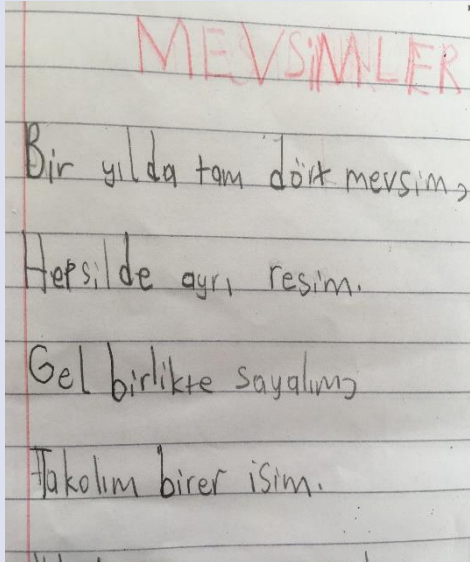 MEVSiMLER
Bir yılda tam dört mevsim,
Hepsilde ayrı resim.
Gel birlikte sayalım,
Takolım birer isim.